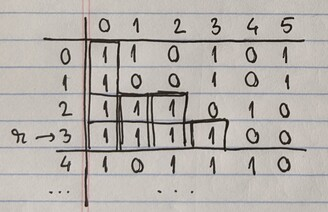 0 1 2 3 4 5
0 1 1 0 1 0 1
1 1 0 0 1 0 1
2 1 1 1 0 1 0
r → 3 1 1 1 1 0 0
4 1 0 1 1 1 0
... ...